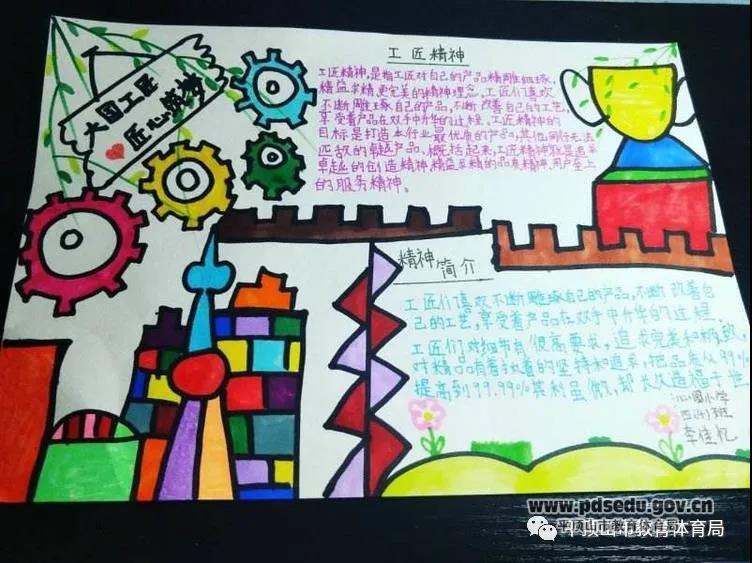 大国工匠
匠心筑梦
工匠精神
工匠精神，是指工匠对自己的产品精雕细琢，
精益求精，更完美的精神理念。工匠们喜欢
不断雕琢自己的产品，不断改善自己的工艺，
享受着产品在双手中升华的过程。工匠精神的
目标是打造本行业最优质的产品，其他同行无法
匹敌的卓越产品。概括起来，工匠精神就是追求
卓越的创造精神、精益求精的品质精神、用户至上
的服务精神。
精神简介
工匠们喜欢不断雕琢自己的产品，不断改善自
己的工艺，享受着产品在双手中升华的过程。
工匠们对细节有很高要求，追求完美和极致，
对精品有着执着的坚持和追求，把品质从99%
提高到99.99%其利虽微，却长久造福于世
小学
四(4)班
李佳忆
www.pdsedu.gov.cn
平顶山市教育体育局
平顶山市教育体育局